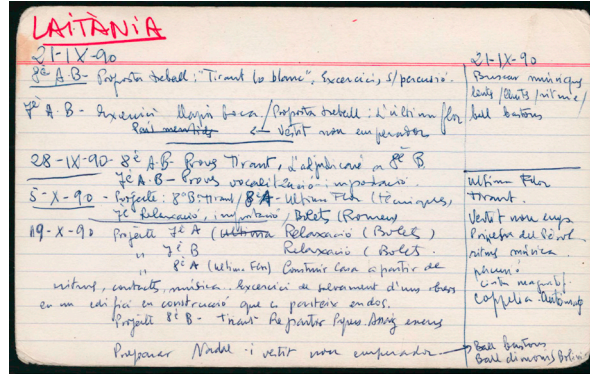 LAITÀNIA
21-IX-90
8è A.B- Proposta treball: "Tirant lo blanc", Exercici, s/percusió.
7è A.B- Exercici llapis boca / Proposta treball: L'última flor
País mentides ← Vestit nou emperador
28-IX-90- 8è A.B- Prova Tirant, L'adjudicaré a 8è B
7è A.B- Prova vocalització i impostació.
5-X-90- Projecte: 8è B: Tirant / 8è A- Ultima Flor (tècniques,
7è Relaxació, impostació / Bolets (Romeu
19-X-90 Projecte 7è A (Ultima Relaxació (Bolets)
" 7è B Relaxació (Bolets.
" 8è A (Ultima Flor) Construir casa a partir de
ritmes, contacte, música. Exercici de salvament d'uns obrers
en un edifici en construcció que es parteix en dos.
Projecte 8è B- Tirant Repartir Papers.
Preparar Nadal i vestit nou emperador →
21-IX-90
Buscar músiques
lents / ritmic /
ball bastons
Ultima Flor
Tirant.
Vestit nou emp.
ritmes música.
percusió
cinta magnetof.
Coppelia
Ball bastons
Ball dimonis